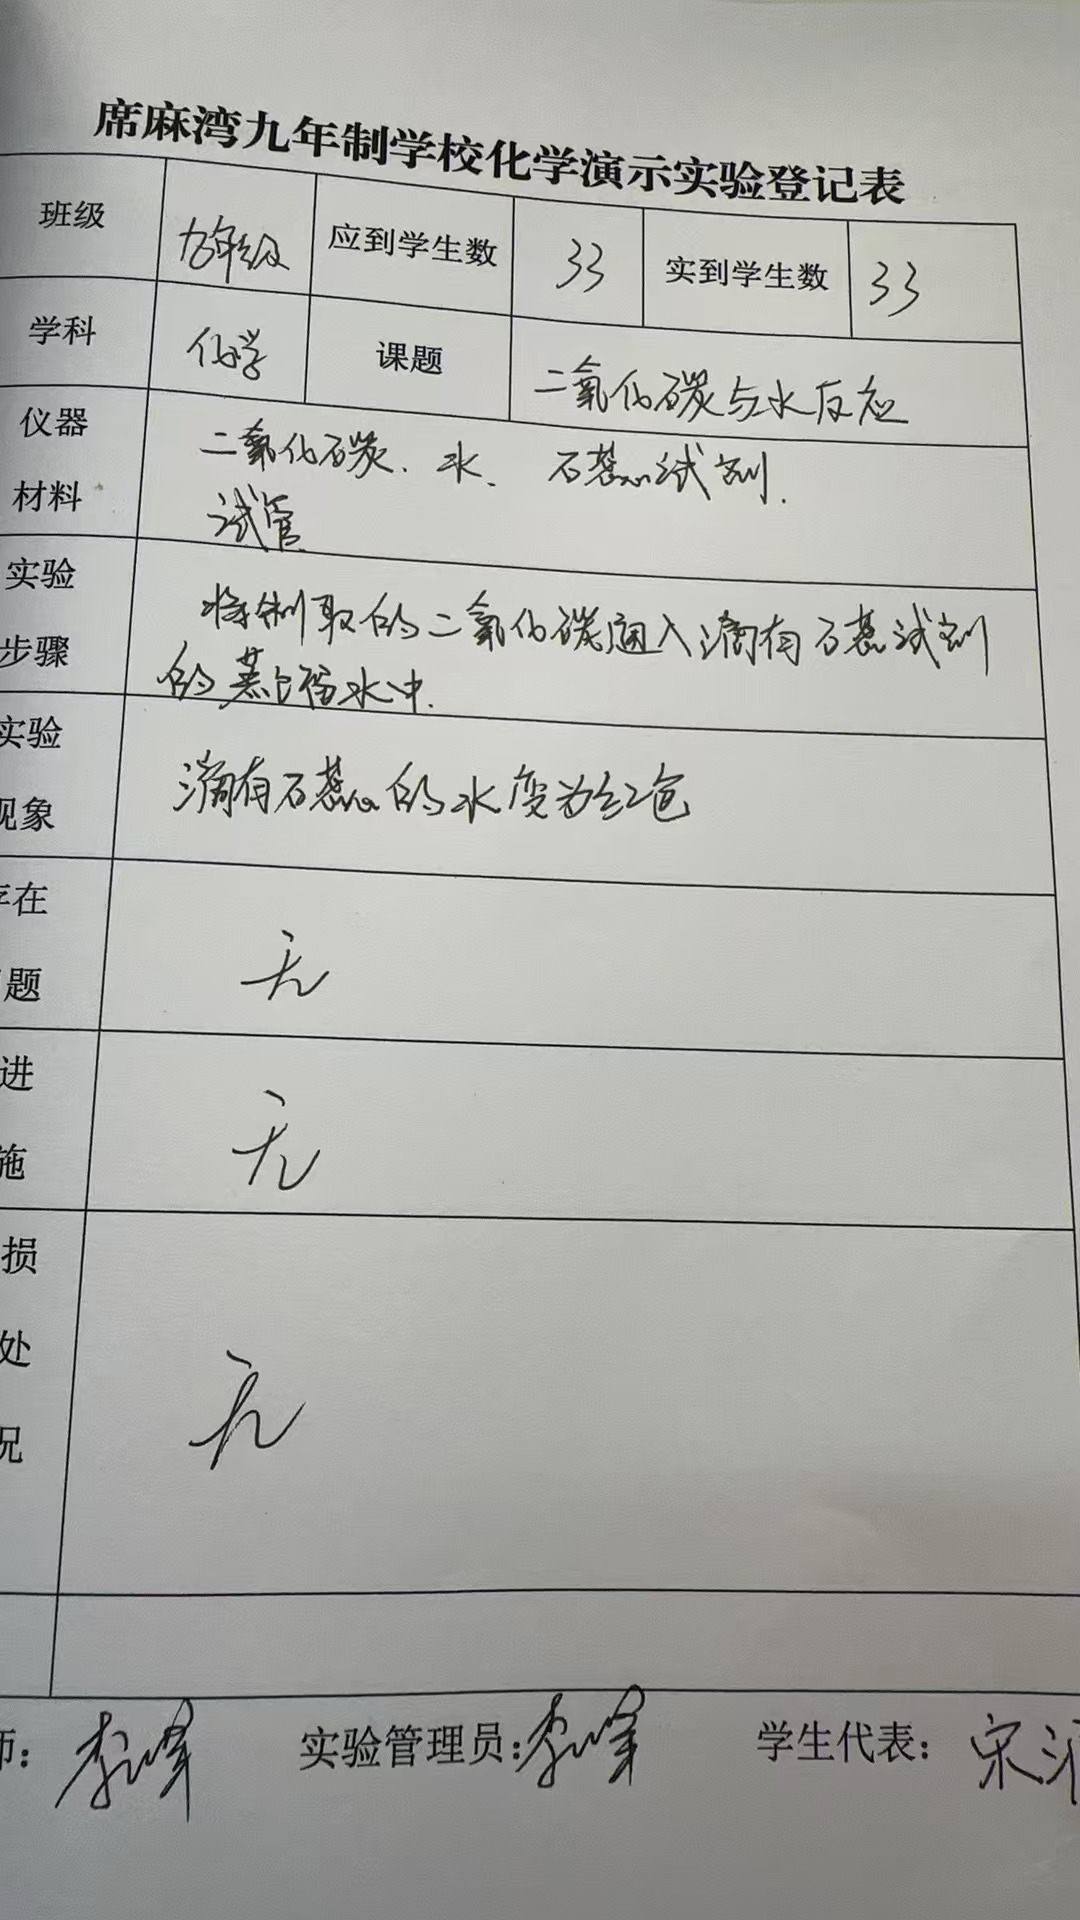 席麻湾九年制学校化学演示实验登记表
班级 九年级 应到学生数 33 实到学生数 33
学科 化学 课题 二氧化碳与水反应
仪器
材料
二氧化碳、水、石蕊试剂.
试管
实验
步骤
将制取的二氧化碳通入滴有石蕊试剂
的蒸馏水中.
实验
现象
滴有石蕊的水变为红色
存在
题
无
进
施
无
损
处
况
无
师: 李峰 实验管理员: 李峰 学生代表: 宋